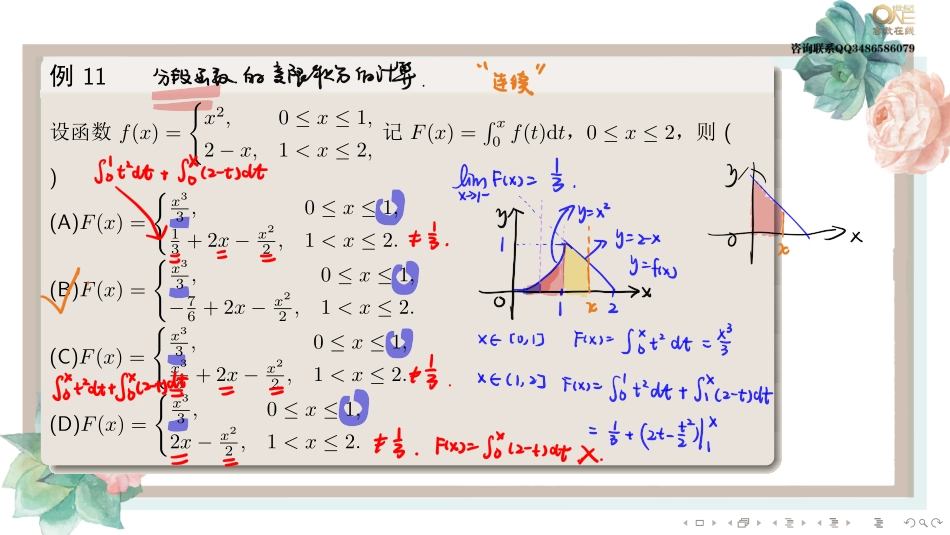 ONE
高数在线
咨询联系QQ3486586079
例 11 分段函数的变限积分的计算. "连续"
设函数 f(x) = { x², 0 ≤ x ≤ 1, 2 − x, 1 < x ≤ 2, 记 F(x) = ∫₀ˣ f(t)dt, 0 ≤ x ≤ 2, 则 (
)
∫₀¹ t²dt + ∫₀ˣ (2-t)dt
(A) F(x) = { x³/3, 0 ≤ x ≤ 1,
1/3 + 2x − x²/2, 1 < x ≤ 2. ≠ 1/3.
(B) F(x) = { x³/3, 0 ≤ x ≤ 1,
−7/6 + 2x − x²/2, 1 < x ≤ 2.
(C) F(x) = { x³/3, 0 ≤ x ≤ 1,
x³/3 + 2x − x²/2, 1 < x ≤ 2. ≠ 1/3.
∫₀ˣ t²dt + ∫₀ˣ (2-t)dt
(D) F(x) = { x³/3, 0 ≤ x ≤ 1,
2x − x²/2, 1 < x ≤ 2. ≠ 1/3. F(x) = ∫₀ˣ (2-t)dt ×.
lim x→1⁻ F(x) = 1/3.
y
y=x²
1
y=2-x
y=f(x)
0 1 x 2 x
y
0 x x
x∈[0,1] F(x) = ∫₀ˣ t² dt = x³/3
x∈(1,2] F(x) = ∫₀¹ t²dt + ∫₁ˣ (2-t)dt
= 1/3 + (2t - t²/2)|₁ˣ